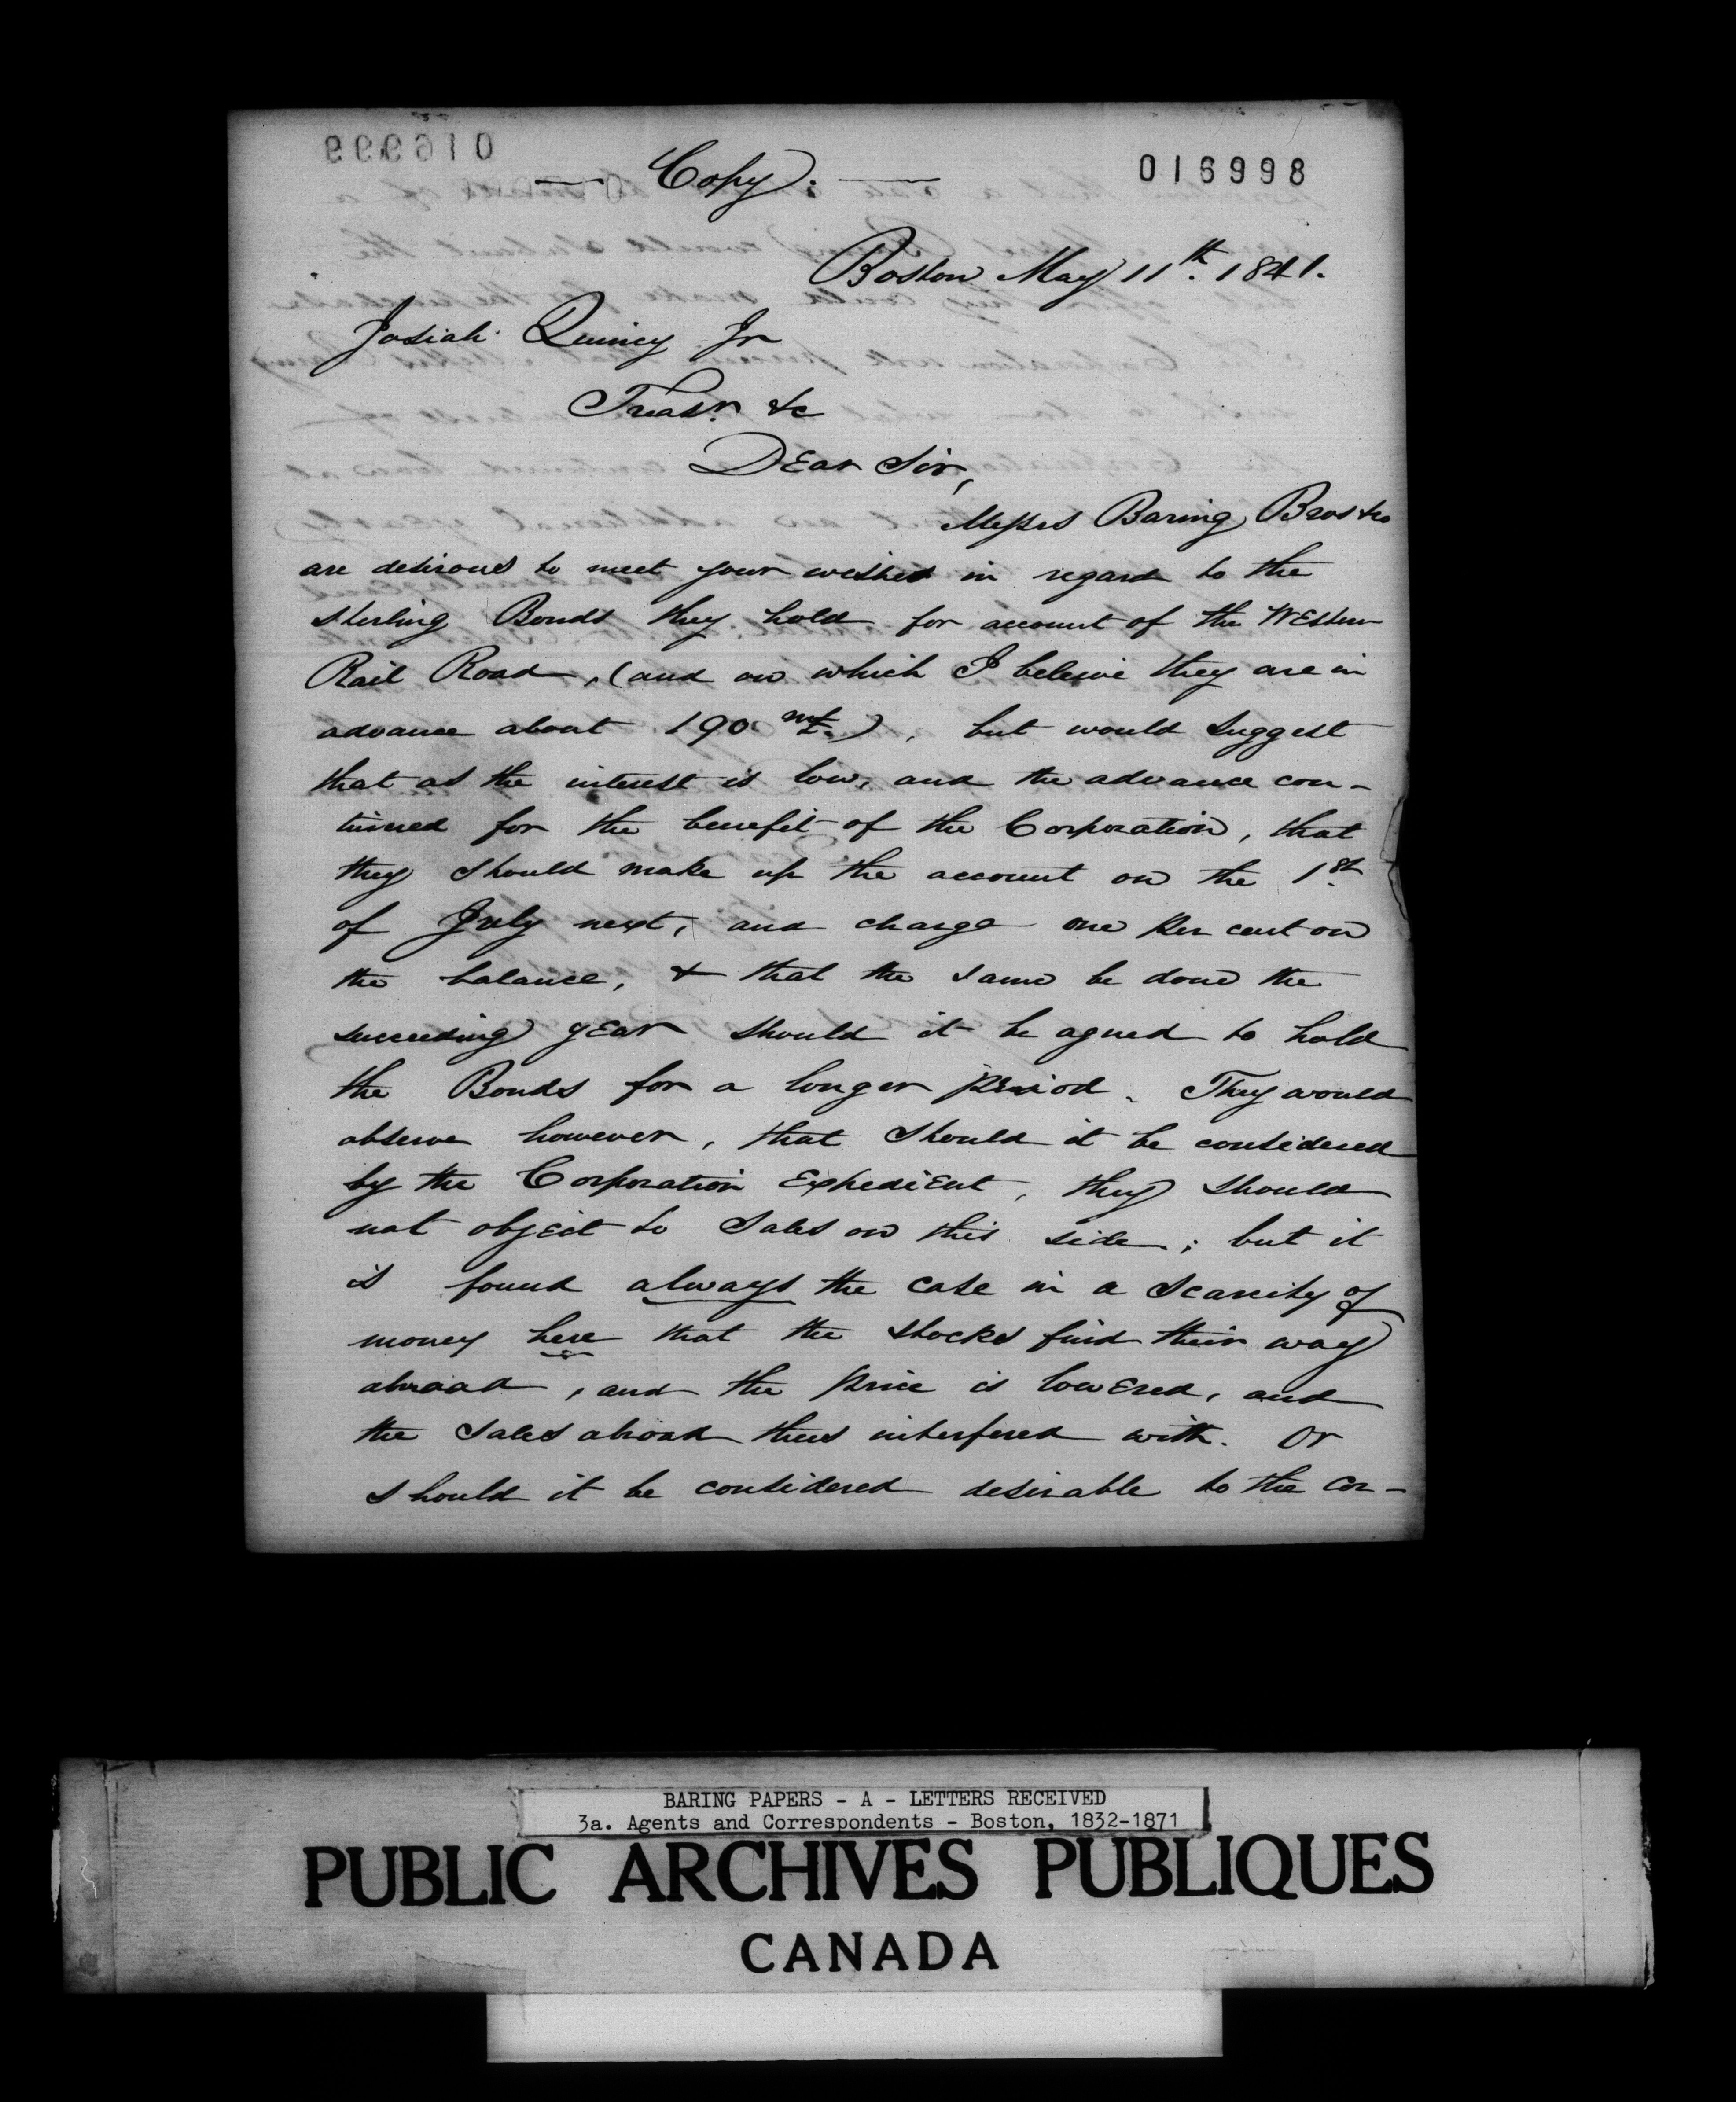 016998
Copy.
Boston May 11th. 1841.
Josiah Quincy Jr
Treasr. &c
Dear Sir,
Messrs Baring Bros & Co
are desirous to meet your wishes in regard to the
sterling Bonds they hold for account of the Western
Rail Road, (and on which I beleive they are in
advance about 190 ), but would suggest
that as the interest is low, and the advance con-
tinued for the benefit of the Corporation, that
they should make up the account on the 1st
of July next, and charge one per cent on
the balance, & that the same be done the
succeeding year should it be agreed to hold
the Bonds for a longer period. They would
observe however, that should it be considered
by the Corporation Expedient, they should
not object to sales on this side; but it
is found always the case in a scarcity of
money here that the stocks find their way
abroad, and the price is lowered, and
the sales abroad thus interfered with. Or
should it be considered desirable to the Cor-
BARING PAPERS - A - LETTERS RECEIVED
3a. Agents and Correspondents - Boston, 1832-1871
PUBLIC ARCHIVES PUBLIQUES
CANADA